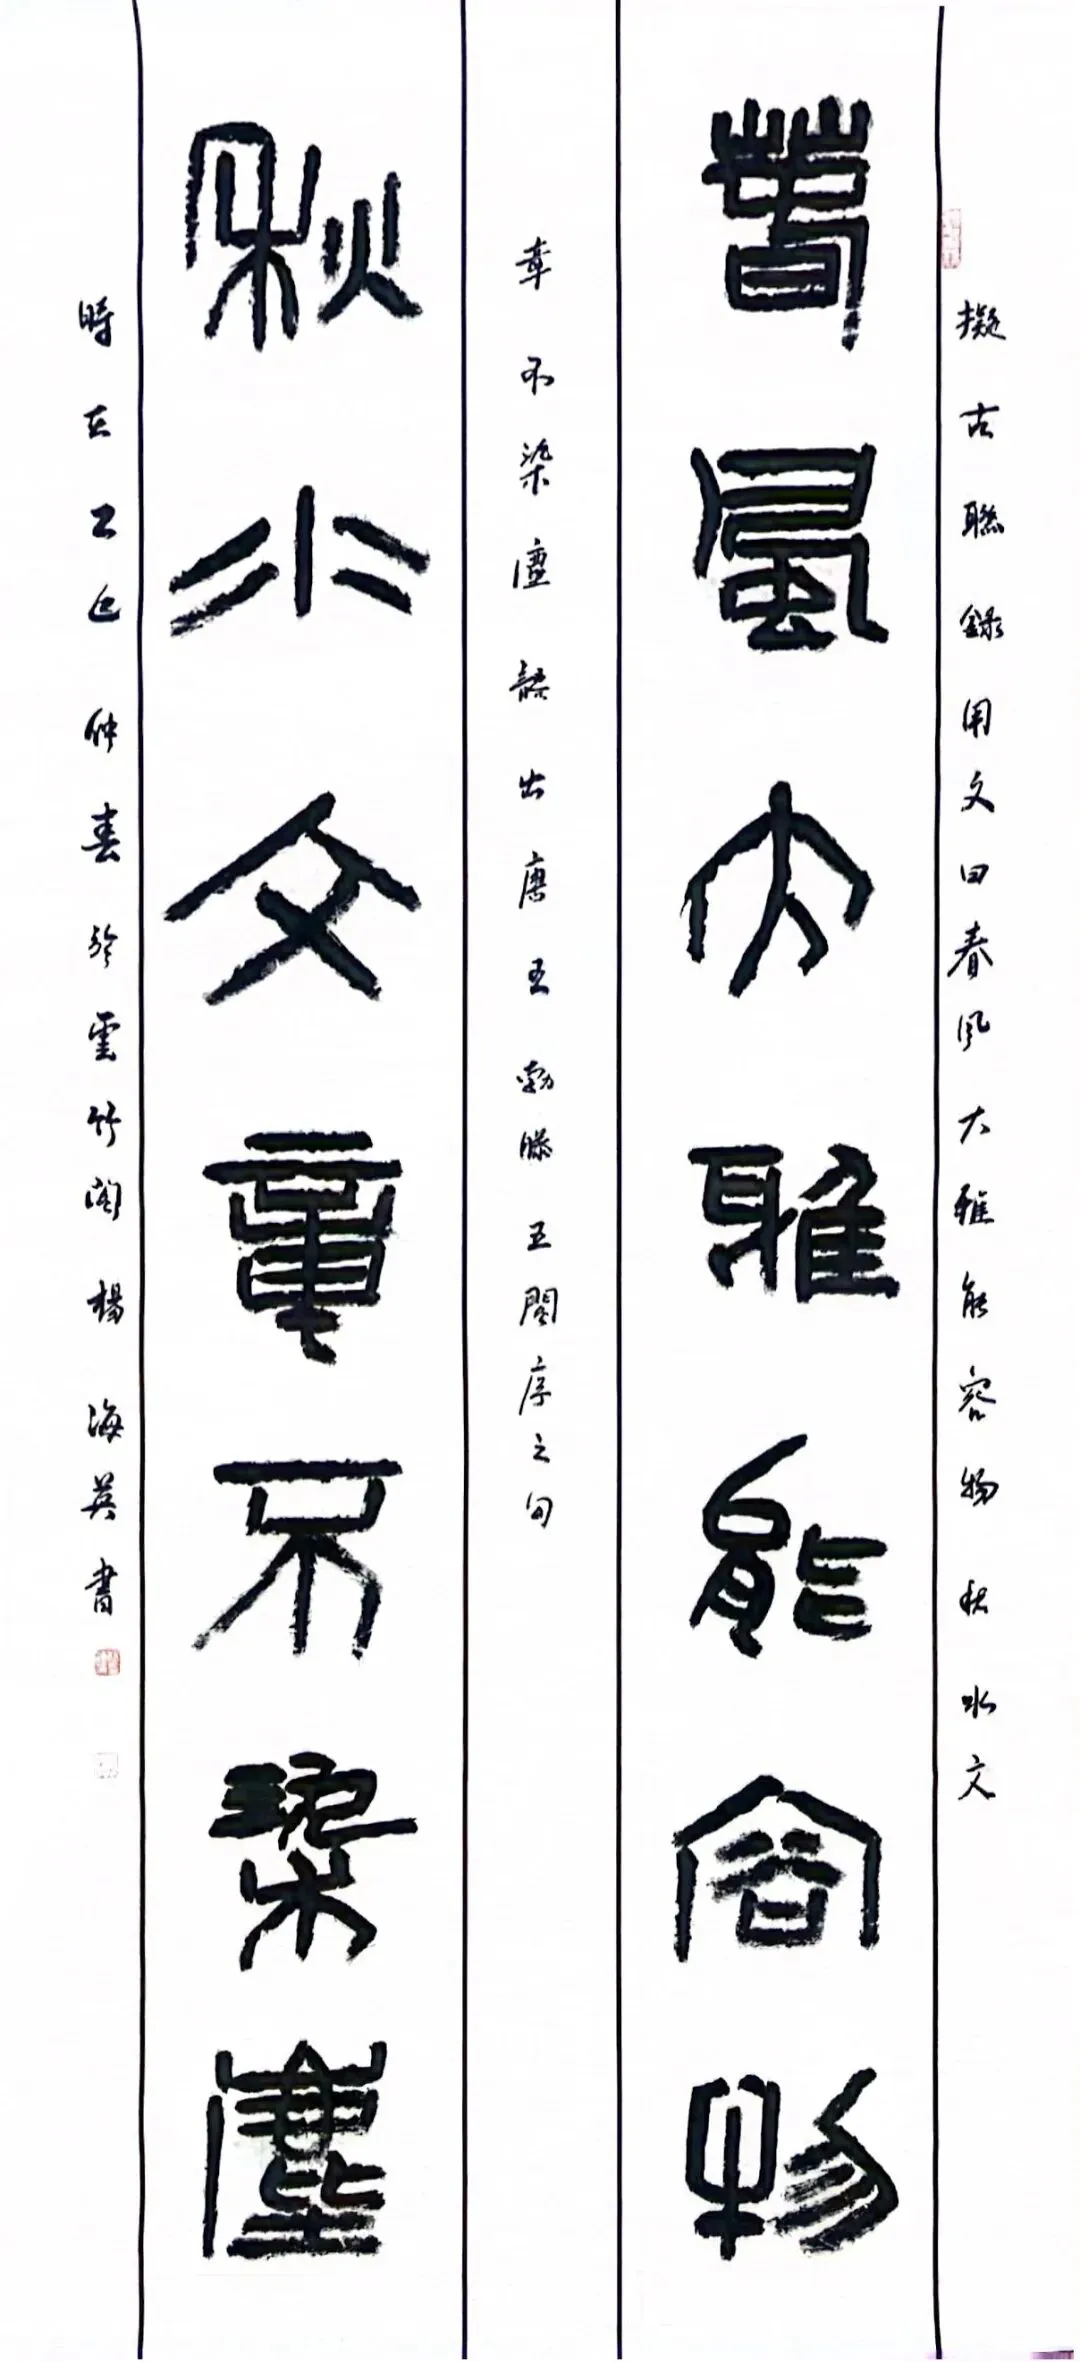 擬古聯錄用文曰春風大雅能容物秋水文
春風大雅能容物
章不染塵語出唐王勃滕王閣序之句
秋水文章不染塵
時在乙巳仲春於雲竹閣楊海英書